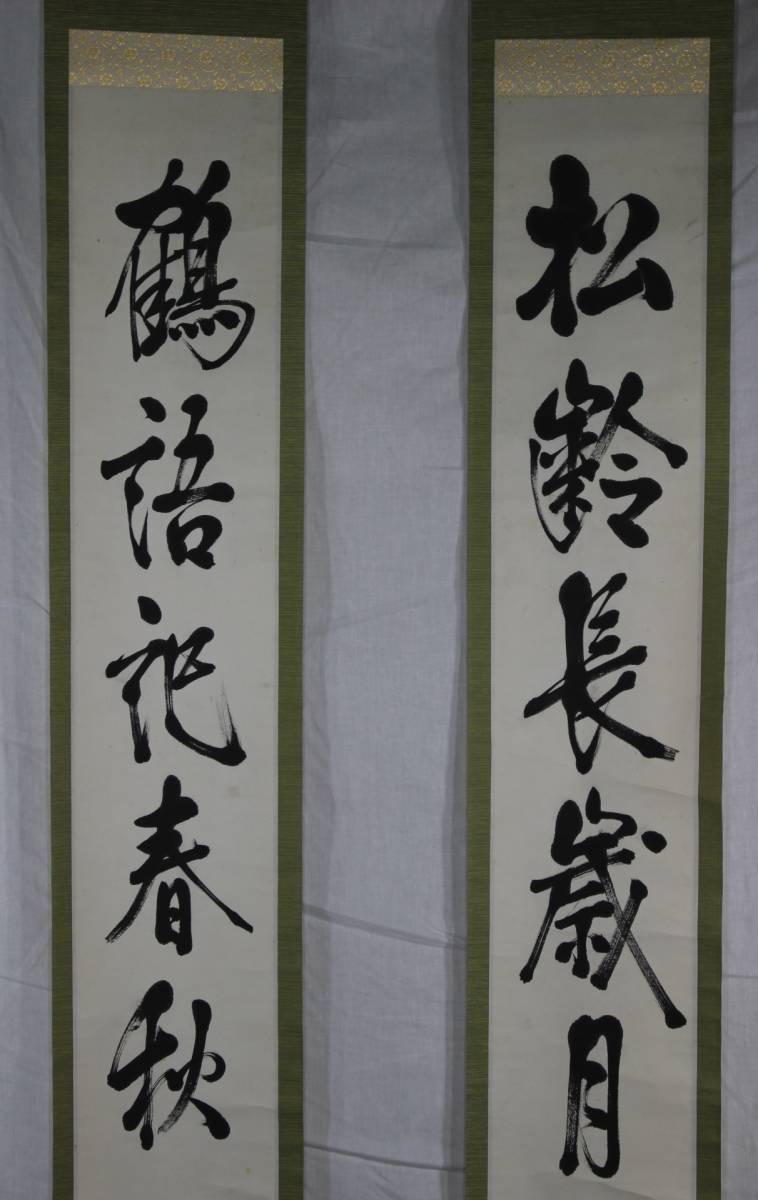 松齡長歲月
鶴語記春秋